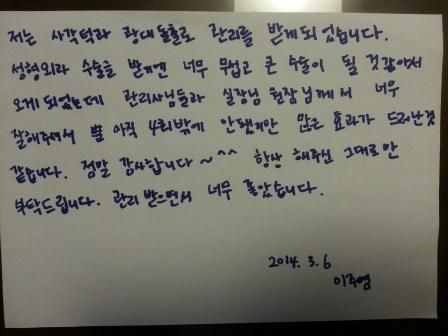 저는 사각턱과 광대돌출로 관리를 받게되었습니다.
성형외과 수술을 받기엔 너무 무섭고 큰 수술이 될 것같아서
오게 되었는데 관리사님들과 실장님 원장님께서 너무
잘해주셔서 뿐 아직 4회밖에 안됐지만 많은 효과가 드러난것
같습니다. 정말 감사합니다~^^ 항상 해주신 그대로만
부탁드립니다. 관리 받으면서 너무 좋았습니다.
2014. 3. 6
이주영